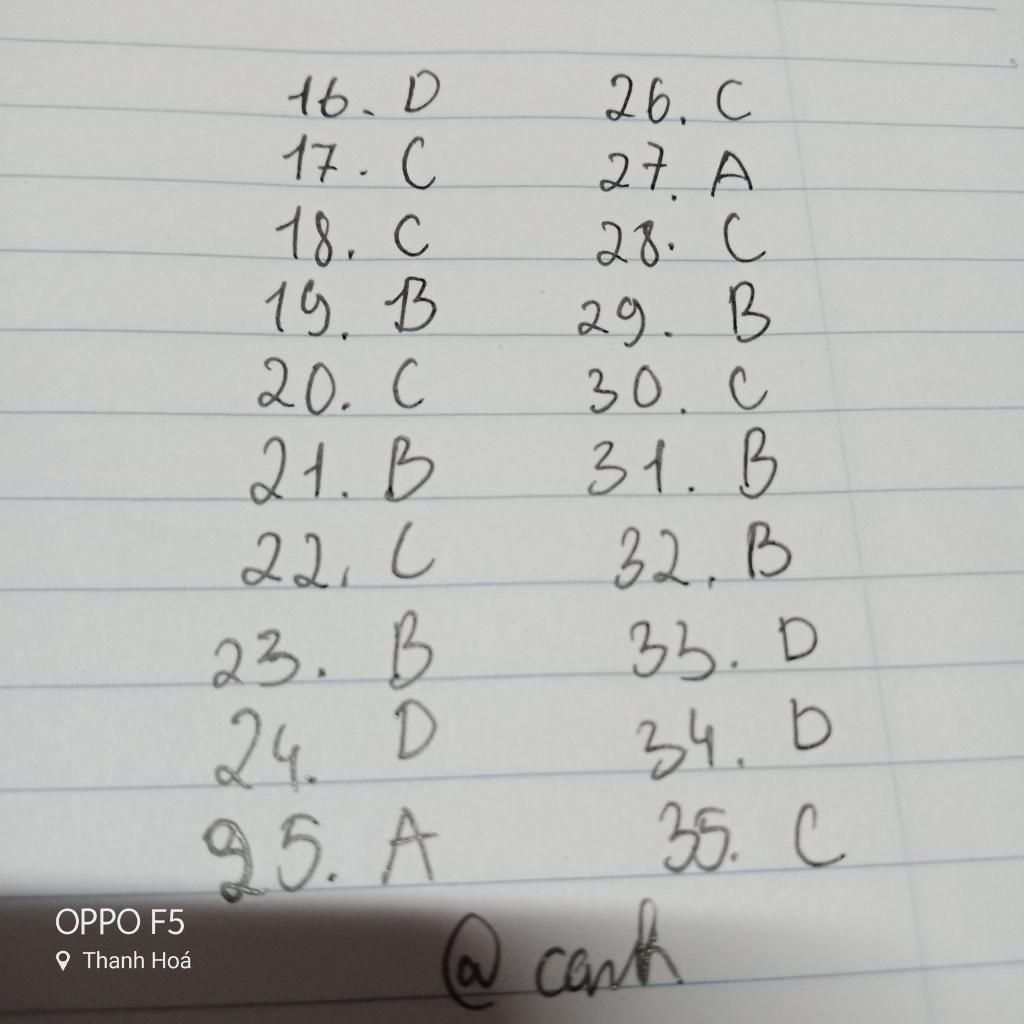 16. D
17. C
18. C
19. B
20. C
21. B
22. C
23. B
24. D
25. A
26. C
27. A
28. C
29. B
30. C
31. B
32. B
33. D
34. D
35. C
@ canh
OPPO F5
Thanh Hoá